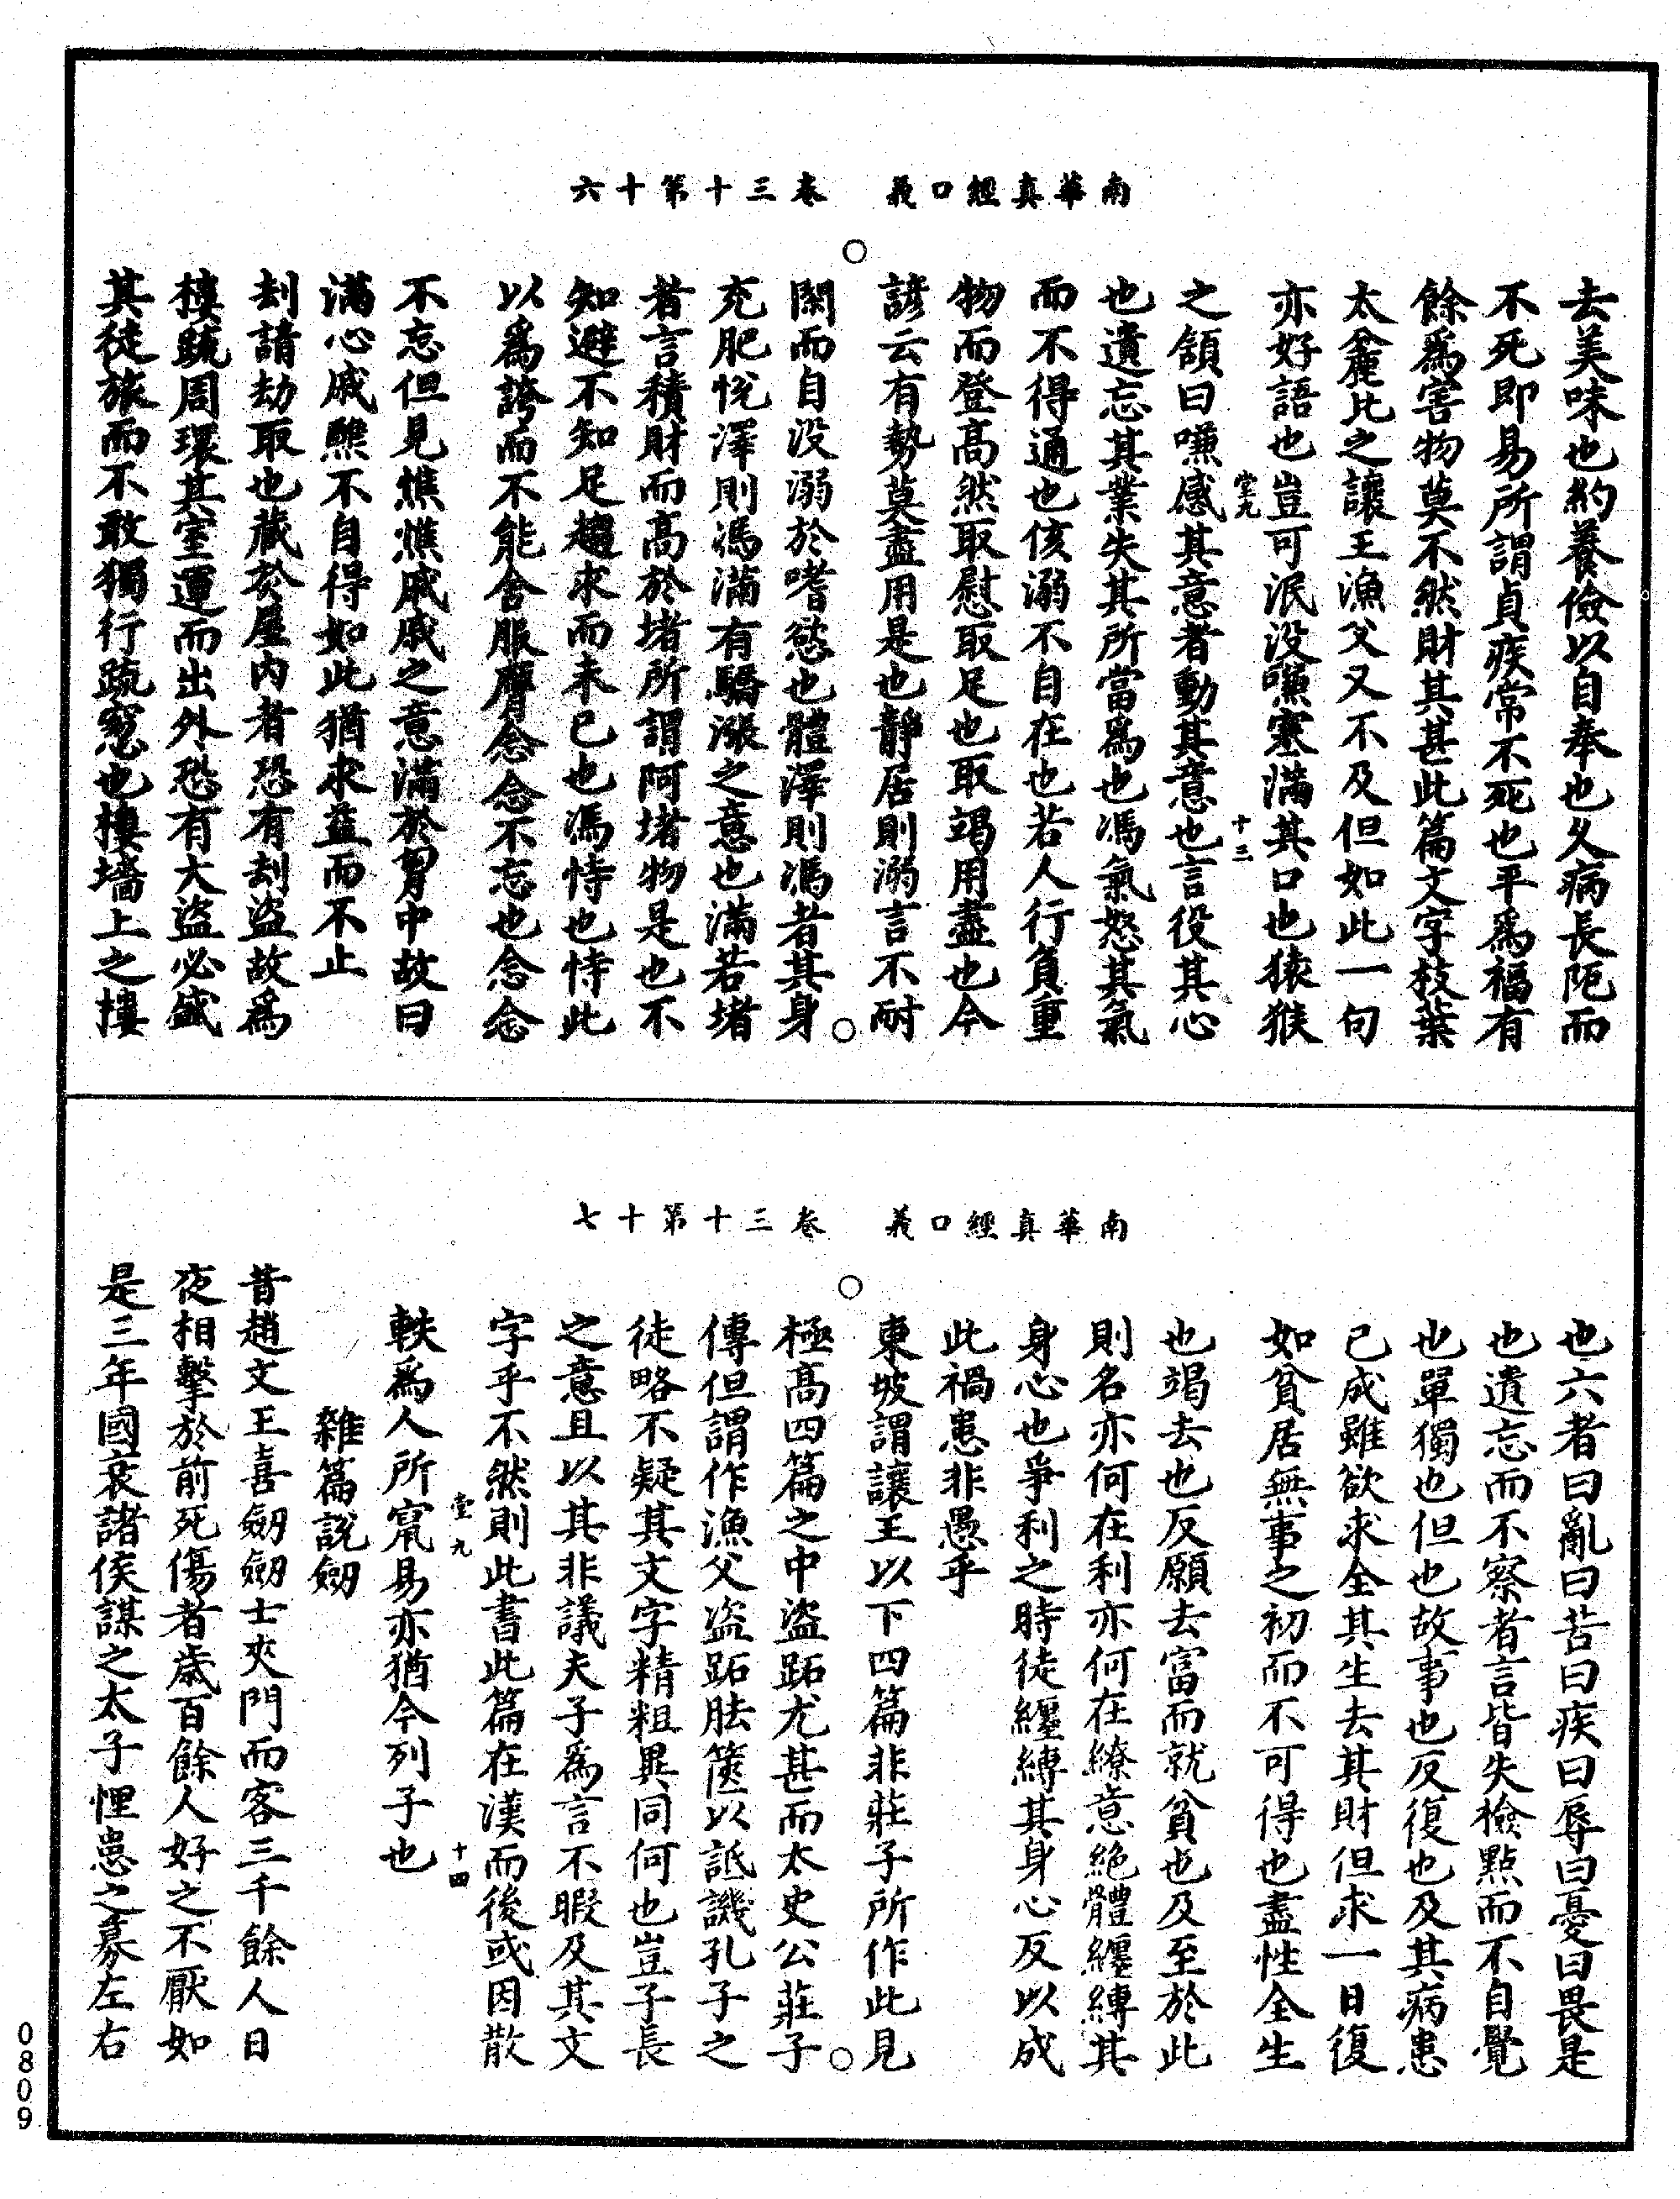 南華真經口義　卷三十　第十六
去美味也約養儉以自奉也久病長阨而
不死即易所謂貞疾常不死也平為福有
餘為害物莫不然財其甚此篇文字枝葉
太麤比之讓王漁父又不及但如此一句
亦好語也豈可泯没嗛塞滿其口也猿猴
堂九　十三
之頷曰嗛感其意者動其意也言役其心
也遺忘其業失其所當為也馮氣怒其氣
而不得通也侅溺不自在也若人行負重
物而登高然取慰取足也取竭用盡也今
諺云有勢莫盡用是也靜居則溺言不耐
閑而自没溺於嗜慾也體澤則馮者其身
充肥悅澤則馮滿有驕漲之意也滿若堵
者言積財而高於堵所謂阿堵物是也不
知避不知足趨求而未已也馮恃也恃此
以為誇而不能舍服膺念念不忘也念念
不忘但見憔憔戚戚之意滿於胷中故曰
滿心戚醮不自得如此猶求益而不止
刦請劫取也藏於屋内者恐有刦盜故為
樓疏周環其室運而出外恐有大盜必盛
其徒旅而不敢獨行疏窓也樓墻上之樓
南華真經口義　卷三十　第十七
也六者曰亂曰苦曰疾曰辱曰憂曰畏是
也遺忘而不察者言皆失檢點而不自覺
也單獨也但也故事也反復也及其病患
已成雖欲求全其生去其財但求一日復
如貧居無事之初而不可得也盡性全生
也竭去也反願去富而就貧也及至於此
則名亦何在利亦何在繚意絕體纏縛其
身心也爭利之時徒纏縛其身心反以成
此禍患非愚乎
東坡謂讓王以下四篇非莊子所作此見
極高四篇之中盜跖尤甚而太史公莊子
傳但謂作漁父盜跖胠篋以詆譏孔子之
徒略不疑其文字精粗異同何也豈子長
之意且以其非議夫子為言不暇及其文
字乎不然則此書此篇在漢而後或因散
堂九　十四
軼為人所竄易亦猶今列子也
雜篇說劒
昔趙文王喜劒劒士夾門而客三千餘人日
夜相擊於前死傷者歲百餘人好之不厭如
是三年國衰諸侯謀之太子悝患之募左右
0809